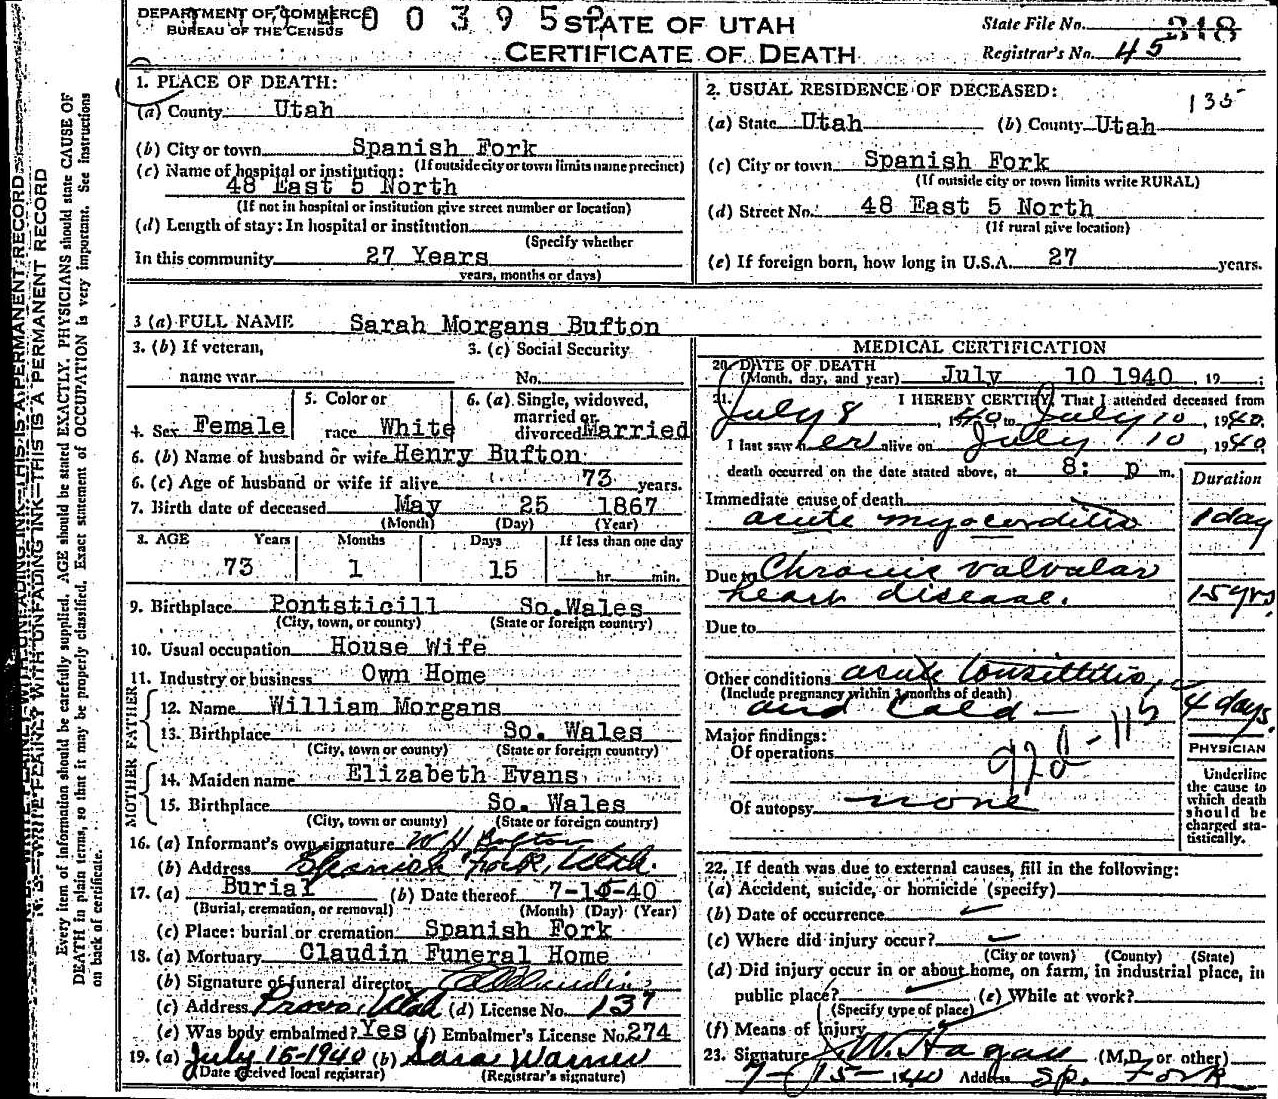 DEPARTMENT OF COMMERCE
BUREAU OF THE CENSUS
0 0 3 9 5
STATE OF UTAH
CERTIFICATE OF DEATH
State File No. 318
Registrar's No. 45
N. B.—WRITE PLAINLY WITH UNFADING INK—THIS IS A PERMANENT RECORD
Every item of information should be carefully supplied. AGE should be stated EXACTLY. PHYSICIANS should state CAUSE OF
DEATH in plain terms, so that it may be properly classified. Exact statement of OCCUPATION is very important. See Instructions
on back of certificate.
1. PLACE OF DEATH:
(a) County Utah
(b) City or town Spanish Fork
(If outside city or town limits name precinct)
(c) Name of hospital or institution:
48 East 5 North
(If not in hospital or institution give street number or location)
(d) Length of stay: In hospital or institution
(Specify whether
In this community 27 Years
years, months or days)
2. USUAL RESIDENCE OF DECEASED:
135
(a) State Utah (b) County Utah
(c) City or town Spanish Fork
(If outside city or town limits write RURAL)
(d) Street No. 48 East 5 North
(If rural give location)
(e) If foreign born, how long in U.S.A. 27 years.
3 (a) FULL NAME Sarah Morgans Bufton
3. (b) If veteran,
name war
3. (c) Social Security
No.
4. Sex Female
5. Color or
race White
6. (a) Single, widowed,
married or
divorced Married
6. (b) Name of husband or wife Henry Bufton
6. (c) Age of husband or wife if alive 73 years.
7. Birth date of deceased May 25 1867
(Month) (Day) (Year)
8. AGE Years Months Days If less than one day
73 1 15 hr. min.
9. Birthplace Pontsticill So. Wales
(City, town, or county) (State or foreign country)
10. Usual occupation House Wife
11. Industry or business Own Home
FATHER
12. Name William Morgans
13. Birthplace So. Wales
(City, town or county) (State or foreign country)
MOTHER
14. Maiden name Elizabeth Evans
15. Birthplace So. Wales
(City, town or county) (State or foreign country)
16. (a) Informant's own signature W H Bufton
(b) Address Spanish Fork, Utah.
17. (a) Burial (b) Date thereof 7-14-40
(Burial, cremation, or removal) (Month) (Day) (Year)
(c) Place: burial or cremation Spanish Fork
18. (a) Mortuary Claudin Funeral Home
(b) Signature of funeral director
(c) Address Provo, Utah (d) License No. 137
(e) Was body embalmed? Yes (f) Embalmer's License No. 274
19. (a) July 15-1940 (b) Sara Warner
(Date received local registrar) (Registrar's signature)
MEDICAL CERTIFICATION
20. DATE OF DEATH
(Month, day, and year) July 10 1940, 19
21. I HEREBY CERTIFY, That I attended deceased from
July 8, 1940 to July 10, 1940.
I last saw her alive on July 10, 1940
death occurred on the date stated above, at 8: p m.
Duration
Immediate cause of death
acute myocarditis 1 day
Due to Chronic valvular
heart disease. 15 yrs.
Due to
Other conditions acute tonsillitis,
(Include pregnancy within 3 months of death)
and Cold — 4 days.
Major findings:
Of operations
92d-115
Of autopsy none
PHYSICIAN
Underline
the cause to
which death
should be
charged sta-
tistically.
22. If death was due to external causes, fill in the following:
(a) Accident, suicide, or homicide (specify)
(b) Date of occurrence
(c) Where did injury occur?
(City or town) (County) (State)
(d) Did injury occur in or about home, on farm, in industrial place, in
public place? (e) While at work?
(Specify type of place)
(f) Means of Injury
23. Signature W. Hagan (M.D. or other)
7-15-1940 Address Sp. Fork